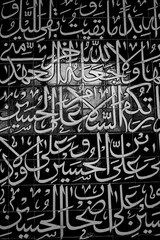 ابدا ما بقيت وبقي الليل و
ولا جعله الله آخر العهد
رتكم السلام على الحسين
وعلى علي بن الحسين وعلى اولا
الحسين وعلى اصحاب الحسين